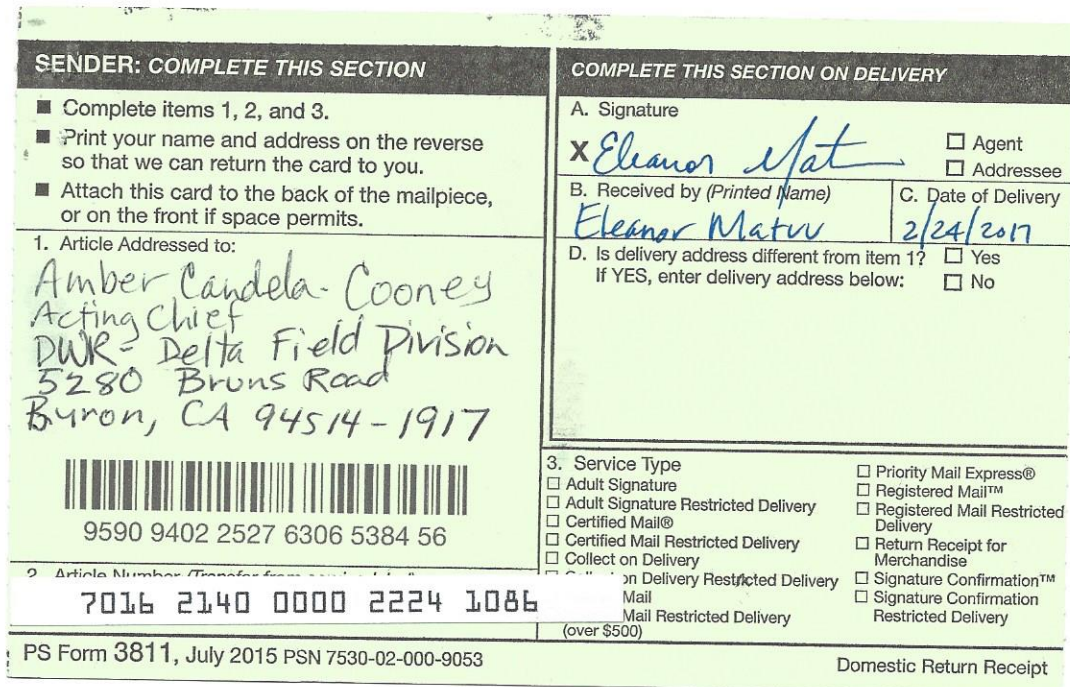 SENDER: COMPLETE THIS SECTION
■ Complete items 1, 2, and 3.
■ Print your name and address on the reverse
so that we can return the card to you.
■ Attach this card to the back of the mailpiece,
or on the front if space permits.
1. Article Addressed to:
Amber Candela-Cooney
Acting Chief
DWR- Delta Field Division
5280 Bruns Road
Byron, CA 94514-1917
9590 9402 2527 6306 5384 56
2. Article Number (Transfer from
7016 2140 0000 2224 1086
COMPLETE THIS SECTION ON DELIVERY
A. Signature
X Eleanor
☐ Agent
☐ Addressee
B. Received by (Printed Name)
Eleanor
C. Date of Delivery
2/24/2017
D. Is delivery address different from item 1? ☐ Yes
If YES, enter delivery address below: ☐ No
3. Service Type
☐ Adult Signature
☐ Adult Signature Restricted Delivery
☐ Certified Mail®
☐ Certified Mail Restricted Delivery
☐ Collect on Delivery
on Delivery Restricted Delivery
Mail
Mail Restricted Delivery
(over $500)
☐ Priority Mail Express®
☐ Registered Mail™
☐ Registered Mail Restricted
Delivery
☐ Return Receipt for
Merchandise
☐ Signature Confirmation™
☐ Signature Confirmation
Restricted Delivery
PS Form 3811, July 2015 PSN 7530-02-000-9053
Domestic Return Receipt